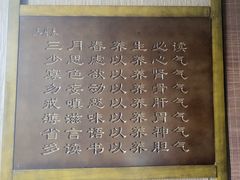 三月春养生必读
少思虑以养心气
寡色欲以养肾气
勿妄动以养骨气
戒嗔怒以养肝气
薄滋味以养胃气
省言语以养神气
多读书以养胆气